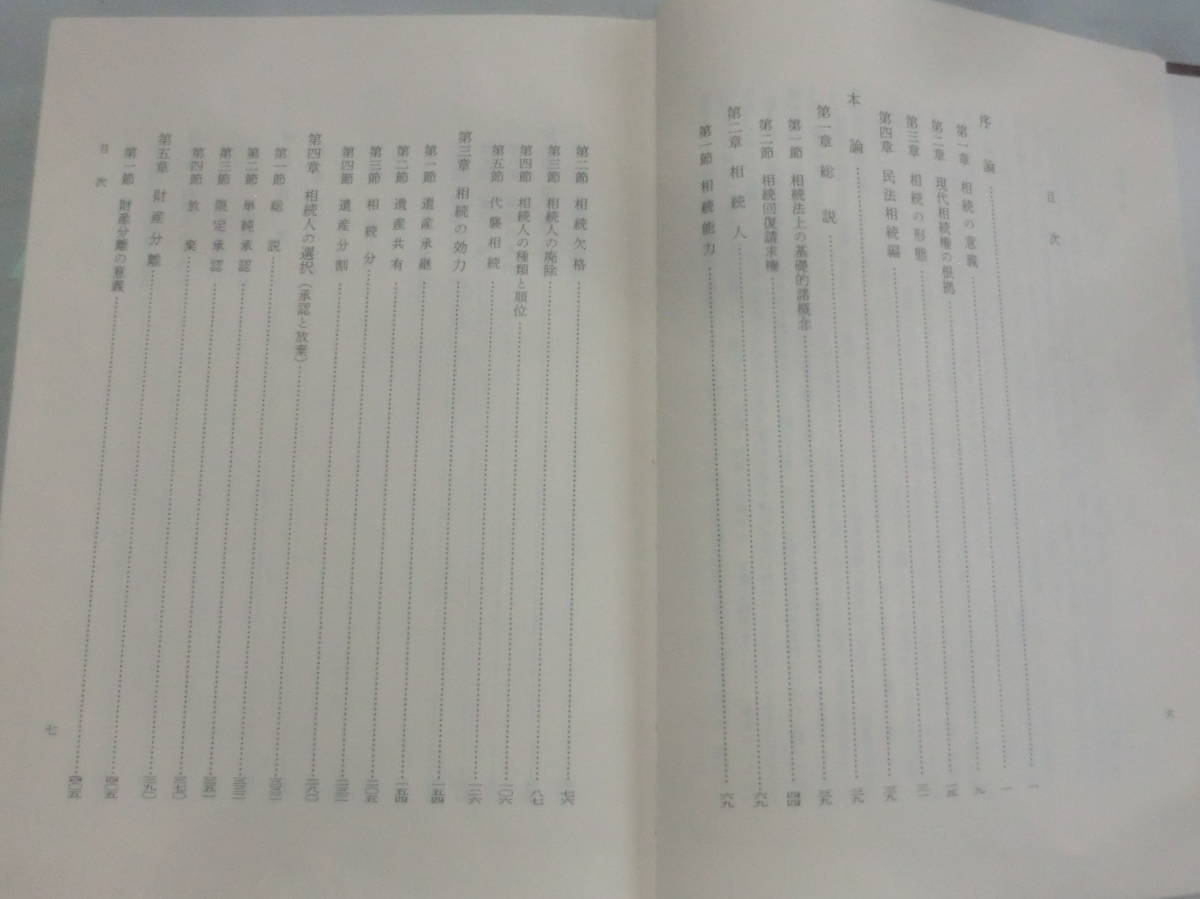 目次
序論 一
第一章 相続の意義 一
第二章 現代相続権の根拠 九
第三章 相続の形態 一五
第四章 民法相続編 二一
本論 三九
第一章 総説 三九
第一節 相続法上の基礎的諸概念 三九
第二節 相続回復請求権 四四
第二章 相続人 六九
第一節 相続能力 六九
六
第二節 相続欠格 七六
第三節 相続人の廃除 八七
第四節 相続人の種類と順位 一〇六
第五節 代襲相続 一二六
第三章 相続の効力 一五四
第一節 遺産承継 一五四
第二節 遺産共有 二〇五
第三節 相続分
第四節 遺産分割
第四章 相続人の選択(承認と放棄)
第一節 総説
第二節 単純承認 三五一
第三節 限定承認 三七〇
第四節 放棄 三九〇
第五章 財産分離 四〇五
第一節 財産分離の意義 四〇五
目次
七